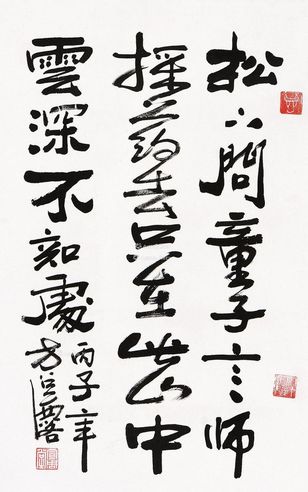 松下問童子言師
採葯去只在此山中
雲深不知處
丙子年
方召麐